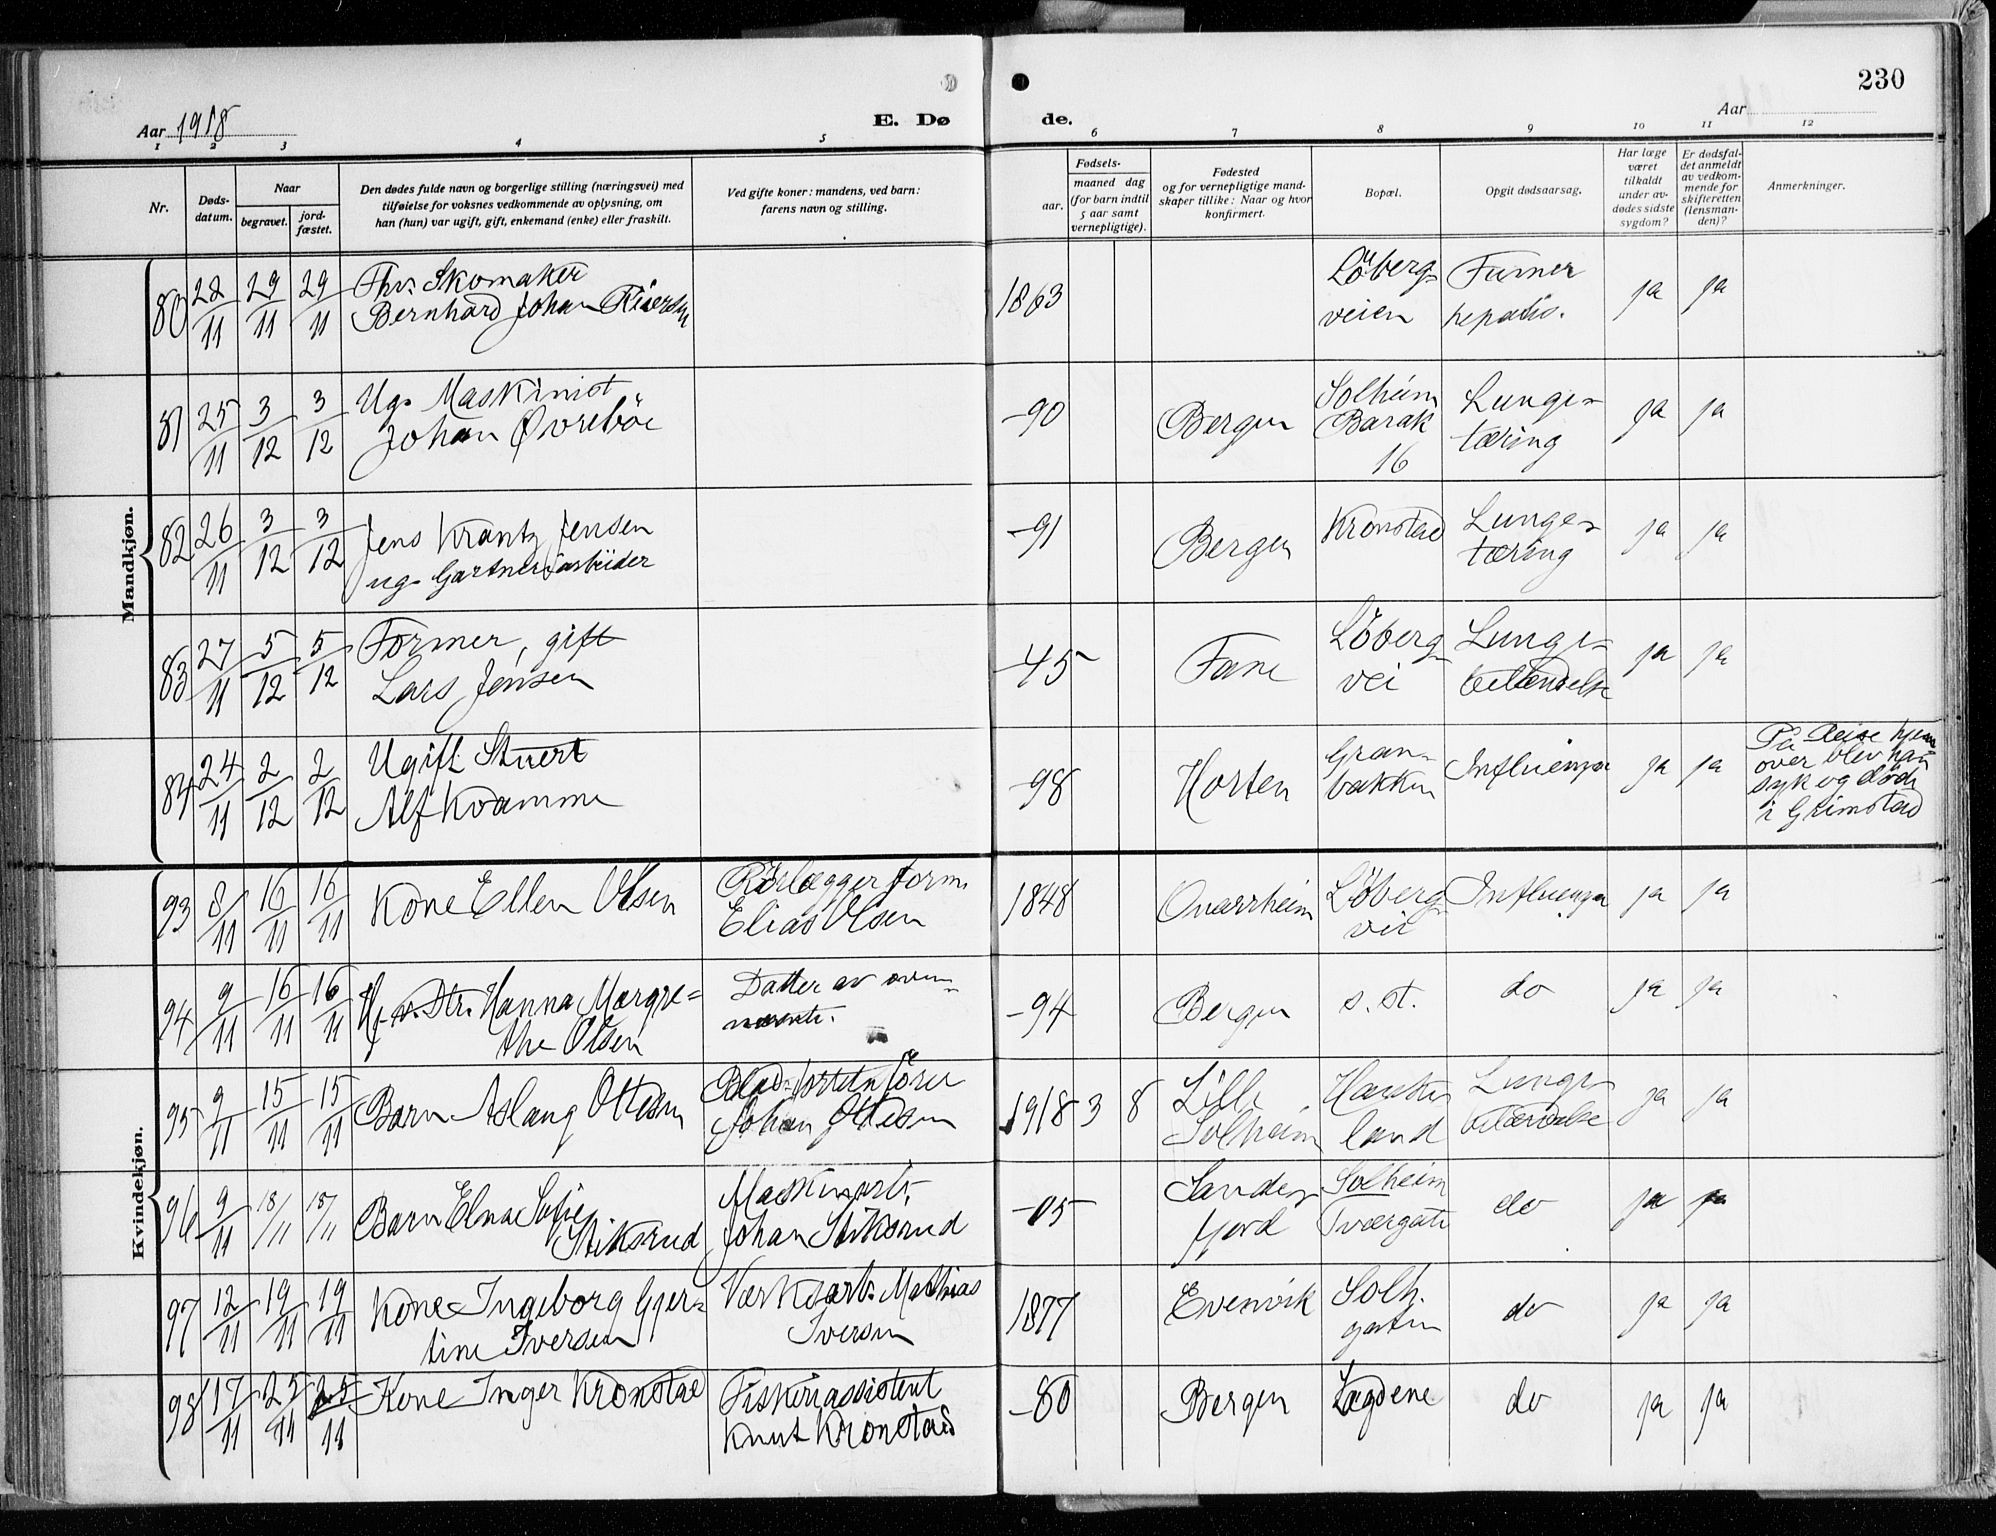 230
Aar 1918
E. Dø de.
Aar
1 2 3 4 5 6 7 8 9 10 11 12
Nr.
Døds-
datum.
Naar
begravet.
jord-
fæstet.
Den dødes fulde navn og borgerlige stilling (næringsvei) med
tilføielse for voksnes vedkommende av oplysning, om
han (hun) var ugift, gift, enkemand (enke) eller fraskilt.
Ved gifte koner: mandens, ved barn:
farens navn og stilling.
Fødsels-
aar.
maaned dag
(for barn indtil
5 aar samt
vernepligtige).
Fødested
og for vernepligtige mand-
skaper tillike: Naar og hvor
konfirmert.
Bopæl.
Opgit dødsaarsag.
Har læge
været
tilkaldt
under av-
dødes sidste
sygdom?
Er dødsfal-
det anmeldt
av vedkom-
mende for
skifteretten
(lensman-
den)?
Anmerkninger.
Mandkjøn.
80 22/11 29/11 29/11 Skomaker
Bernhard Johan
1863 Löberg-
veien
hepatis. ja ja
81 25/11 3/12 3/12 Ug. Maskinist
Johan Øvreböe
-90 Bergen Solheim
Barak
16
Lunge-
tæring ja ja
82 26/11 3/12 3/12 Jens Krantz Jensen
ug. Gartneriarbeider
-91 Bergen Kronstad Lunge-
tæring ja ja
83 27/11 5/12 5/12 Former, gift
Lars Jensen
-45 Fane Löberg-
vei
Lunge-
betændelse ja ja
84 24/11 2/12 2/12 Ugift Stuert
Alf Kvamme
-98 Horten Gran-
bakken
Influenza ja ja
På Reise hjem-
over blev han
syk og döde
i Grimstad
Kvindekjøn.
93 8/11 16/11 16/11 Kone Ellen Olsen Rörlægger form.
Elias Olsen
1848 Qvarrheim Löberg-
vei
Influenza ja ja
94 9/11 16/11 16/11 Dtr. Hanna Margre=
the Olsen
Datter av oven-
nævnte.
-94 Bergen s. st. do ja ja
95 9/11 15/11 15/11 Barn Aslaug Ottesen
Johan Ottesen
1918 3 8 Lille
Solheim
Haraks-
land
Lunge-
betændelse ja ja
96 9/11 18/11 18/11 Barn Elna Sofie
Stiksrud
Maskinarb.
Johan Stiksrud
-05 Sande-
fjord
Solheim
Tværgate
do ja ja
97 12/11 19/11 19/11 Kone Ingeborg Gjer=
tine Iversen
Værksarb. Mathias
Iversen
1877 Evenvik Solh.
gaten
do ja ja
98 17/11 25/11 25/11 Kone Inger Kronstad Fiskeriassistent
Knut Kronstad
-80 Bergen Lægdene do ja ja